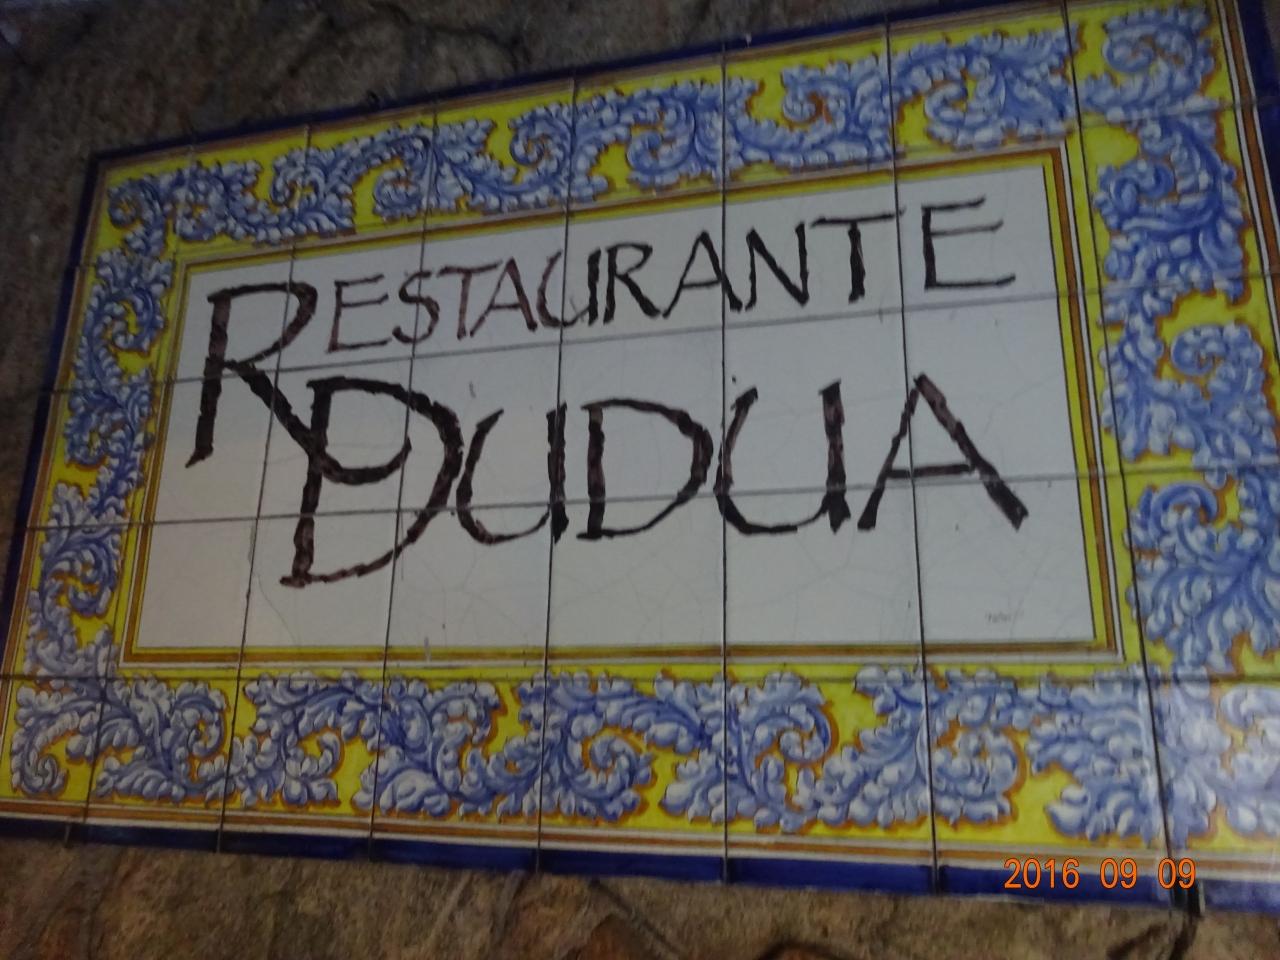 RESTAURANTE
DUDUA
2016 09 09